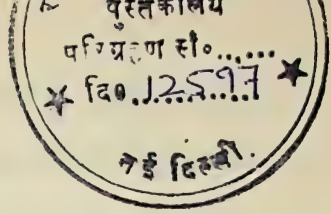 पुस्तकालय
परिग्रहण सं०......
दि०.12.5.97....
नई दिल्ली.